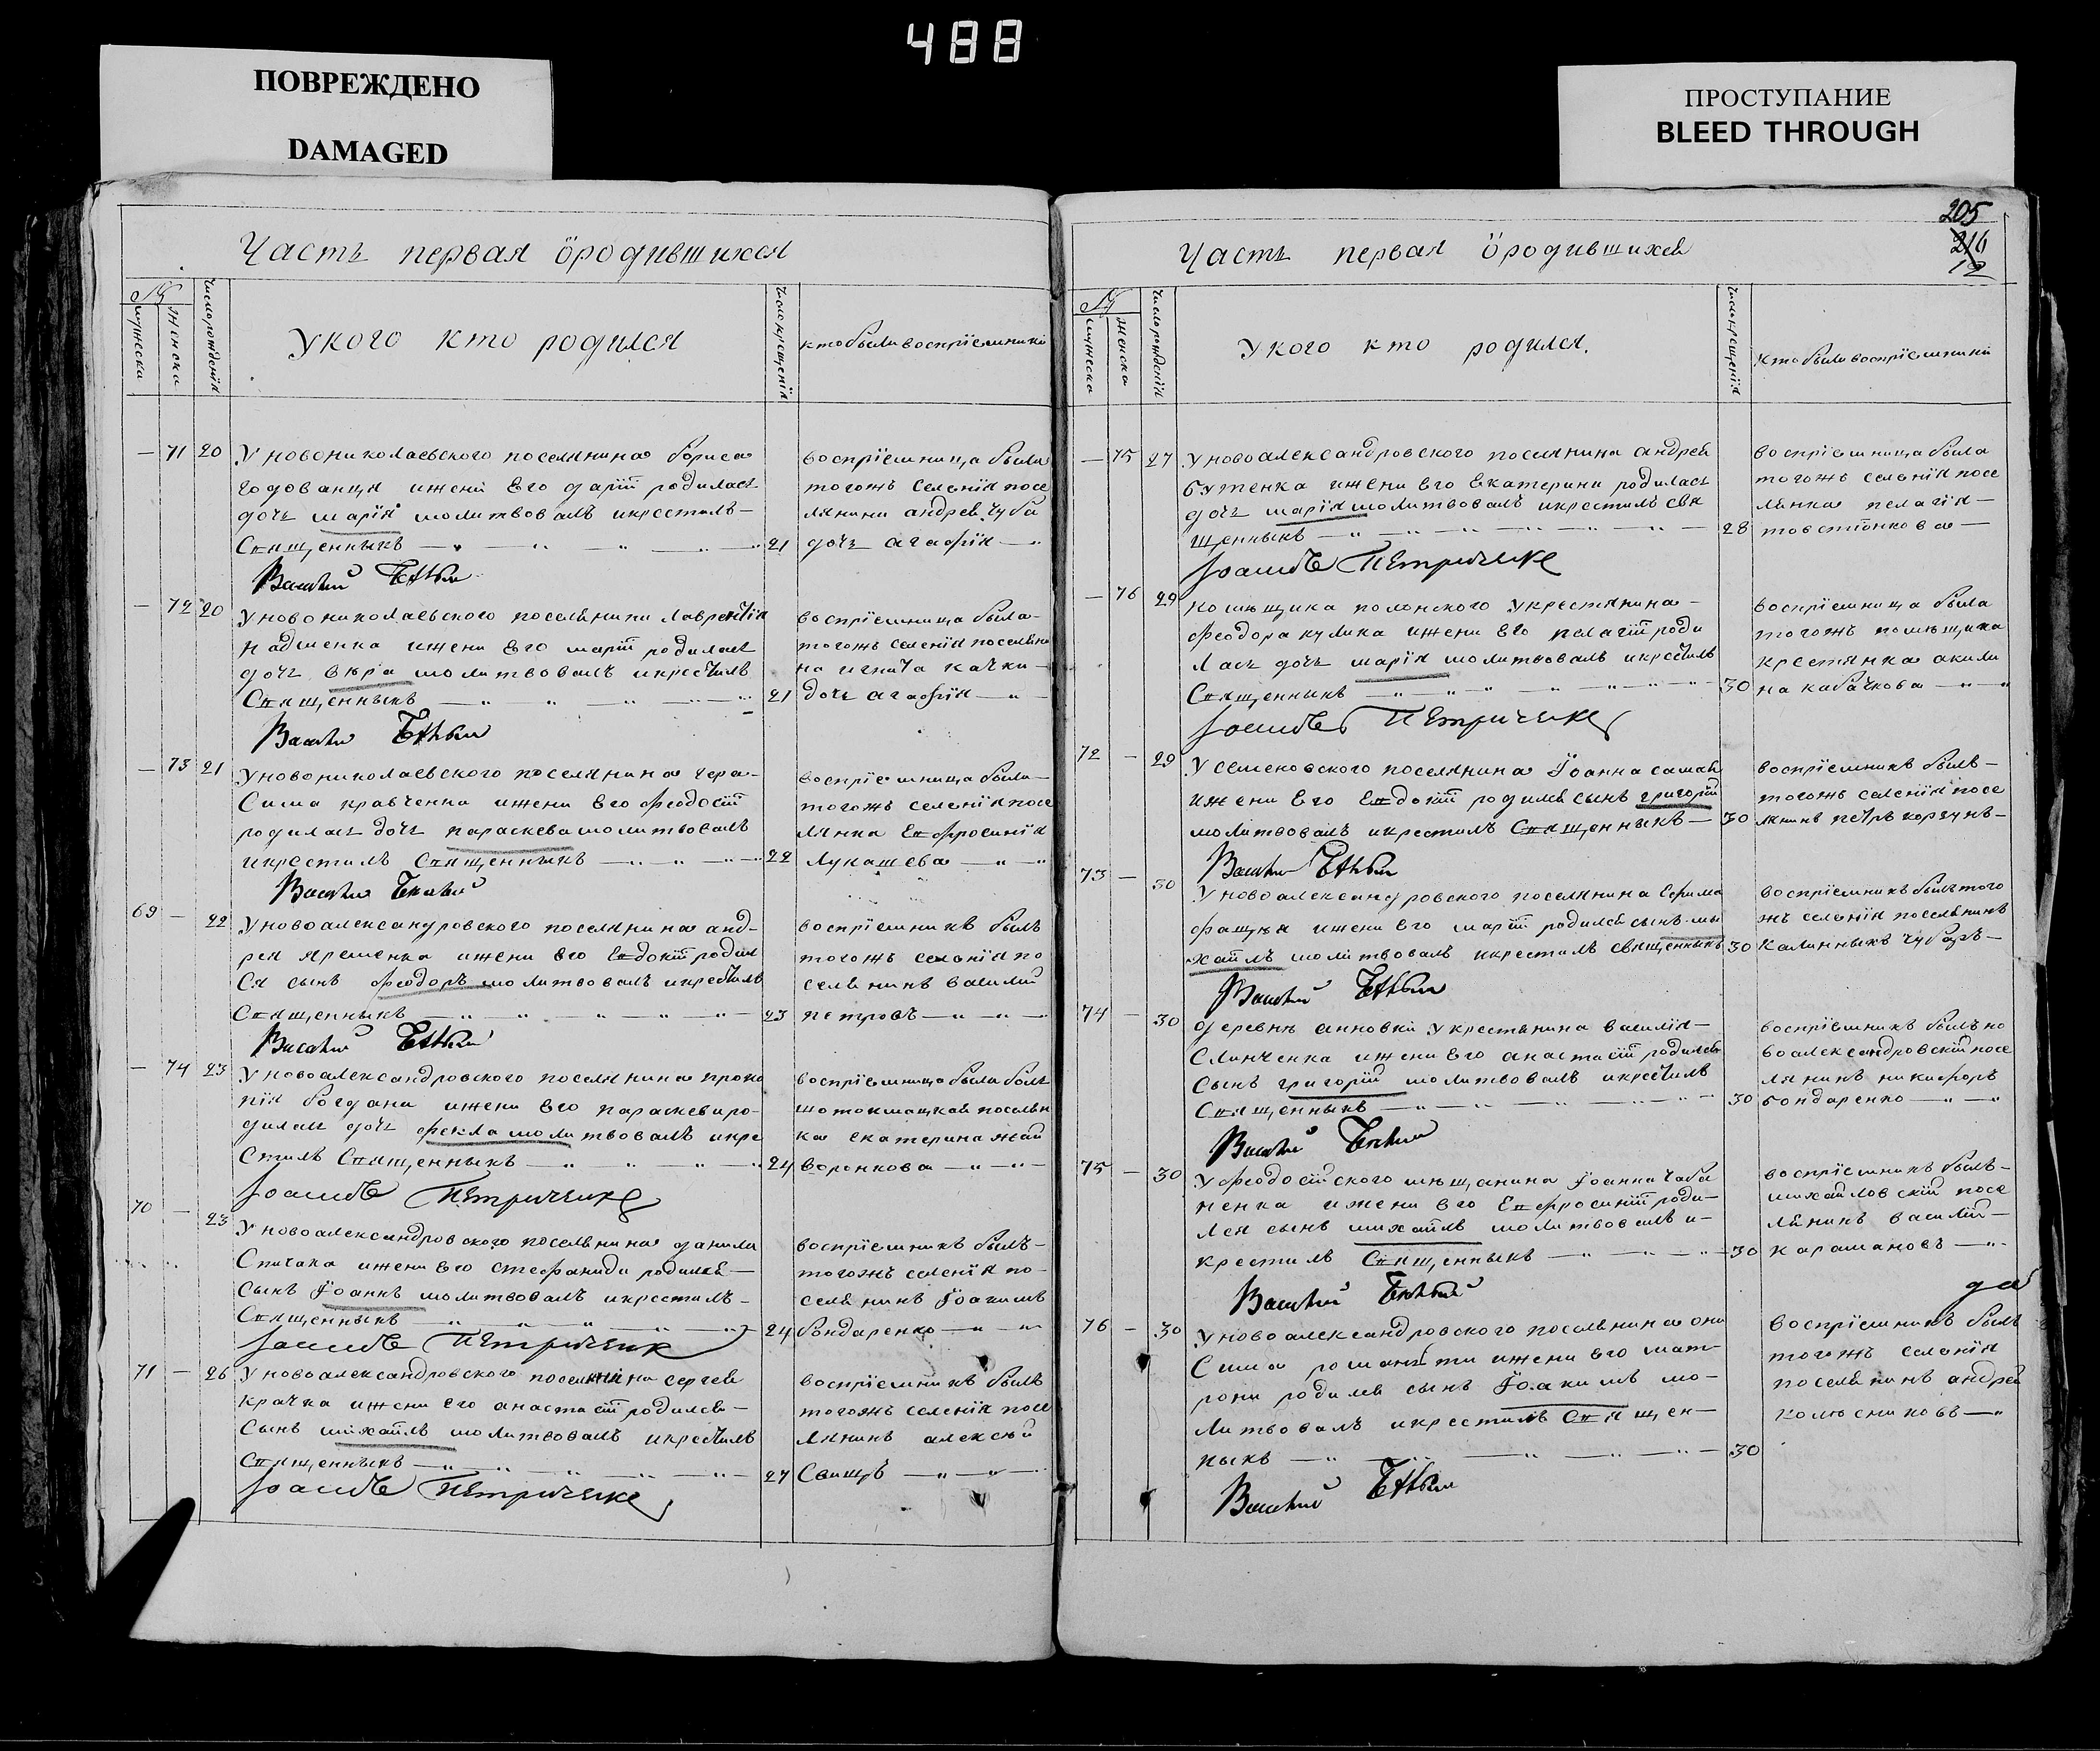 488
ПОВРЕЖДЕНО
DAMAGED
ПРОСТУПАНИЕ
BLEED THROUGH
Часть первая ӧродившихся
№
мужеска
женска
Число рожденїя
У кого кто родился
Число крещенїя
кто были воспрїемники
— 71 20 У новониколаевского поселянина бориса
годованця и жени Его дарїи родилась
дочь марїя молитвовалъ и крестилъ —
Священникъ — 21
Василий Белый
воспрїемница была
тогожъ селенїя посе
лянина андрея чуба
дочь агафїя —
— 72 20 У новониколаевского поселянина лаврентїя
жени Его марїи родилась
дочь вѣра молитвовалъ и крестилъ
Священникъ — 21
Василий Белый
воспрїемница была
тогожъ селенїя поселяни
на игната качки —
дочь агафїя —
— 73 21 У новониколаевского поселянина гера-
сима кравченка и жени Его феодосїи
родилась дочь параскева молитвовалъ
и крестилъ Священникъ — 22
Василий Белый
воспрїемница была —
тогожъ селенїя посе
лянка Евфросинїя
лукашева —
69 — 22 У новоалександровского поселянина анд-
рея яременка и жени Его Евдокїи родил
ся сынъ феодоръ молитвовалъ и крестилъ
Священникъ — 23
Василий Белый
воспрїемникъ былъ
тогожъ селенїя по
селянинъ василий
петровъ —
— 74 23 У новоалександровского поселянина проко
пїя богдана и жени Его параскеви ро-
дилась дочь фекла молитвовалъ и кре
стилъ Священникъ — 24
Іоаннъ Петриченко
воспрїемница была боль
шотокмацкая поселян
ка екатерина жай
воронкова —
70 — 23 У новоалександровского поселянина данила
Спичака и жени Его стефаниди родился —
сынъ Їоаннъ молитвовалъ и крестилъ —
Священникъ — 24
Іоаннъ Петриченко
воспрїемникъ былъ —
тогожъ селенїя по-
селянинъ Їоакимъ
бондаренко —
71 — 26 У новоалександровского поселянина сергея
крачка и жени Его анастасїи родился —
сынъ михаилъ молитвовалъ и крестилъ
Священникъ — 27
Іоаннъ Петриченко
воспрїемникъ былъ
тогожъ селенїя посе
лянинъ алексѣй
Свищъ —
205
216
12
Часть первая ӧродившихся
№
мужеска
женска
Число рожденїя
У кого кто родился.
Число крещенїя
Кто были воспрїемники
— 75 27 У новоалександровского поселянина андрея
бутенка и жени Его Екатерини родилась
дочь марїя молитвовалъ и крестилъ свя
щенникъ — 28
Іоаннъ Петриченко
воспрїемница была
тогожъ селенїя посе
лянка пелагїя —
товстїонкова —
— 76 29 помѣщика полонского У крестянина —
феодора кулика и жени Его пелагїи роди
лась дочь марїя молитвовалъ и крестилъ
Священникъ — 30
Іоаннъ Петриченко
воспрїемница была
тогожъ помѣщика
крестянка акили
на кабачкова —
72 — 29 У семеновского поселянина Їоанна самая
и жени Его Евдокїи родился сынъ григорїй
молитвовалъ и крестилъ Священникъ — 30
Василий Белый
воспрїемникъ былъ —
тогожъ селенїя посе
лянинъ петръ корзунъ —
73 — 30 У новоалександровского поселянина Ефима
фащуя и жени Его марїи родился сынъ ми
хаилъ молитвовалъ и крестилъ священникъ 30
Василий Белый
воспрїемникъ былъ того
жъ селенїя поселянинъ
Калинникъ чубарь —
74 — 30 деревнѣ анновки У крестянина василїя —
Слинченка и жени Его анастасїи родился
Сынъ григорїй молитвовалъ и крестилъ
Священникъ — 30
Василий Белый
воспрїемникъ былъ но
воалександровскїй посе
лянинъ никифоръ
бондаренко —
75 — 30 У феодосїйского мѣщанина Їоанна чаба
ненка и жени Его Евфросинїи роди-
лся сынъ михаилъ молитвовалъ и —
крестилъ Священникъ — 30
Василий Белый
воспрїемникъ былъ —
михайловскїй посе
лянинъ василїй —
карамановъ —
76 — 30 У новоалександровского поселянина они
сима и жени Его мат-
рони родился сынъ Їоакимъ мо-
литвовалъ и крестилъ Священ-
никъ — 30
Василий Белый
воспрїемникъ былъ
тогожъ селенїя
поселянинъ андрей
колѣсниковъ —